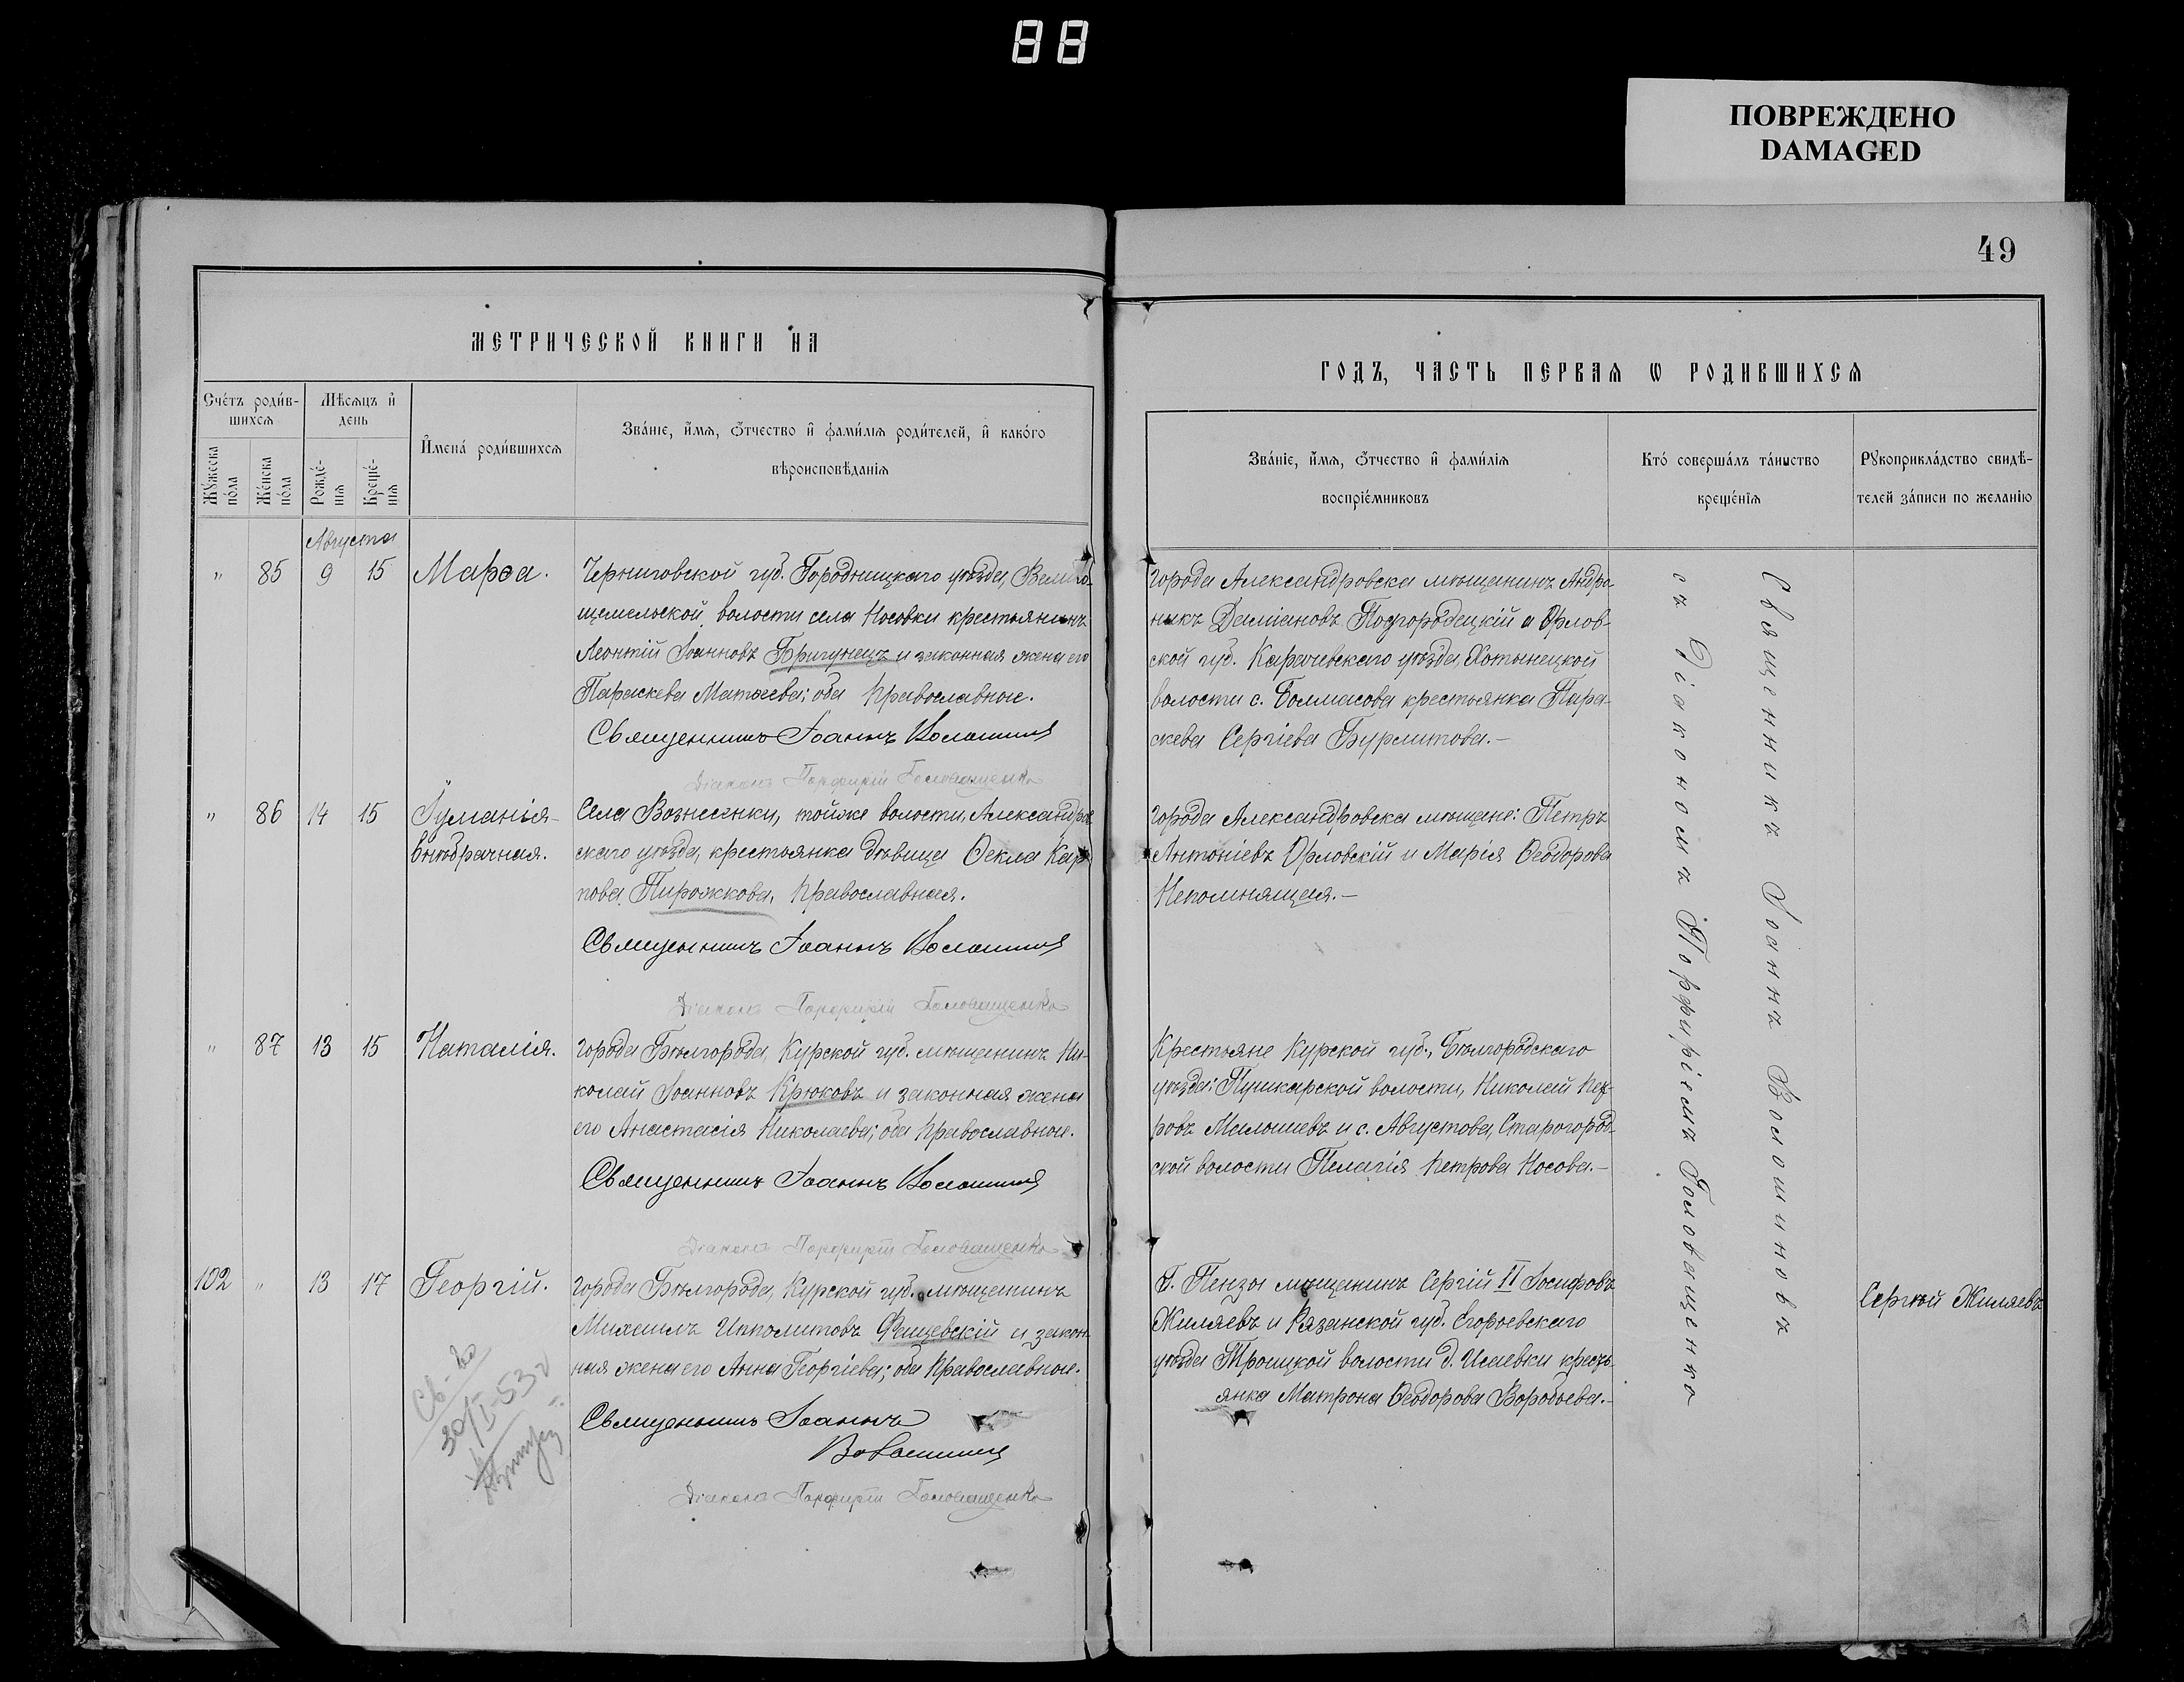 88
ПОВРЕЖДЕНО
DAMAGED
49
МЕТРИЧЕСКОЙ КНИГИ НА
ГОДЪ, ЧАСТЬ ПЕРВАЯ Ѡ РОДИВШИХСЯ
Счетъ родив-
шихся
Мѣсяцъ и
день
Мужеска
пола
Женска
пола
Рожде-
нія
Креще-
нія
Имена родившихся
Званіе, имя, отчество и фамилія родителей, и какого
вѣроисповѣданія
Званіе, имя, отчество и фамилія
воспріемниковъ
Кто совершалъ таинство
крещенія
Рукоприкладство свидѣ-
телей записи по желанію
Августа
" 85 9 15 Марѳа.
Черниговской губ. Городницкаго уѣзда, Велико-
щемельской волости села Носовки крестьянинъ
Леонтій Іоанновъ Бригунецъ и законная жена его
Параскева Матѳеева; оба православные.
Священникъ Іоаннъ Волошинъ
Діаконъ Порфирій Головащенко
города Александровска мѣщанинъ Андро-
никъ Даміановъ Подгородецкій и Орлов-
ской губ. Карачевскаго уѣзда, Хотынецкой
волости с. Болмасова крестьянка Пара-
скева Сергіева Бурлитова.—
" 86 14 15
внѣбрачная.
Села Вознесенки, тойже волости, Александров-
скаго уѣзда, крестьянка дѣвица Ѳекла Кар-
пова Пирожкова, православная.
Священникъ Іоаннъ Волошинъ
Діаконъ Порфирій Головащенко
города Александровска мѣщане: Петръ
Антоніевъ Орловскій и Марія Ѳеодорова
Непомнящая.—
" 87 13 15 Наталія.
города Бѣлгорода, Курской губ. мѣщанинъ Ни-
колай Іоанновъ Крюковъ и законная жена
его Анастасія Николаева; оба православные.
Священникъ Іоаннъ Волошинъ
Діаконъ Порфирій Головащенко
Крестьяне Курской губ., Бѣлгородскаго
уѣзда: Пушкарской волости, Николай Пет-
ровъ Малышевъ и с. Августова, Старогород-
ской волости Пелагія Петрова Носова.—
102 " 13 17 Георгій.
города Бѣлгорода, Курской губ. мѣщанинъ
Михаилъ Ипполитовъ Фащевскій и закон-
ная жена его Анна Георгіева; оба православные.
Священникъ Іоаннъ
Волошинъ
Діаконъ Порфирій Головащенко
Г. Пензы мѣщанинъ Сергій II Іосифовъ
Жиляевъ и Рязанской губ. Егорьевскаго
уѣзда Троицкой волости д. Исаевки кресть-
янка Матрона Ѳеодорова Воробьева.—
Сергѣй Жиляевъ
Св-во
30/I-53г
Священникъ Іоаннъ Волошиновъ
съ Діакономъ Порфиріемъ Головащенко